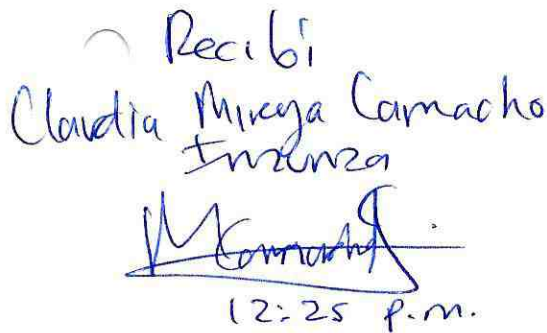 Recibí
Claudia Mireya Camacho
Inzunza
MCamacho
12:25 p.m.